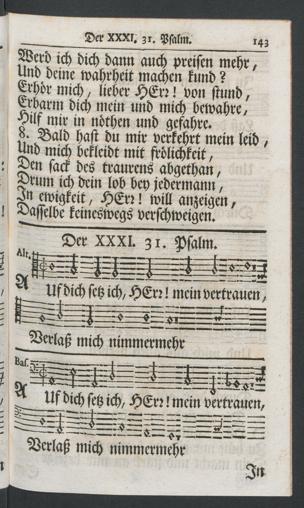 Der XXXI. 31. Psalm. 143
Werd ich dich dann auch preisen mehr,
Und deine wahrheit machen kund?
Erhör mich, lieber HErr! von stund,
Erbarm dich mein und mich bewahre,
Hilf mir in nöthen und gefahre.
8. Bald hast du mir verkehrt mein leid,
Und mich bekleidt mit frölichkeit,
Den sack des traurens abgethan,
Drum ich dein lob bey jedermann,
In ewigkeit, HErr! will anzeigen,
Dasselbe keineswegs verschweigen.
Der XXXI. 31. Psalm.
Alt.
Auf dich setz ich, HErr! mein vertrauen,
Verlaß mich nimmermehr
Bas.
Auf dich setz ich, HErr! mein vertrauen,
Verlaß mich nimmermehr
In